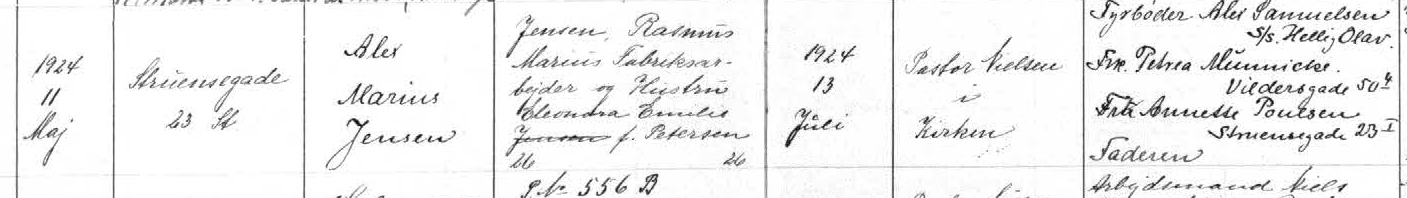 1924
11
Maj
Struensegade
23 St
Alex
Marius
Jensen
Jensen, Rasmus
Marius Fabriksar-
bejder og Hustru
Eleonora Emilie
Jensen f. Petersen
26 26
1924
13
Juli
Pastor Nielsen
i
Kirken
Fyrbøder Alex Samuelsen
S/s. Hellig Olav.
Frk. Petrea Münnicke.
Vildersgade 50 4
Annette Poulsen
Struensegade 23 I
Faderen
№ 556 B
Arbejdsmand Niels